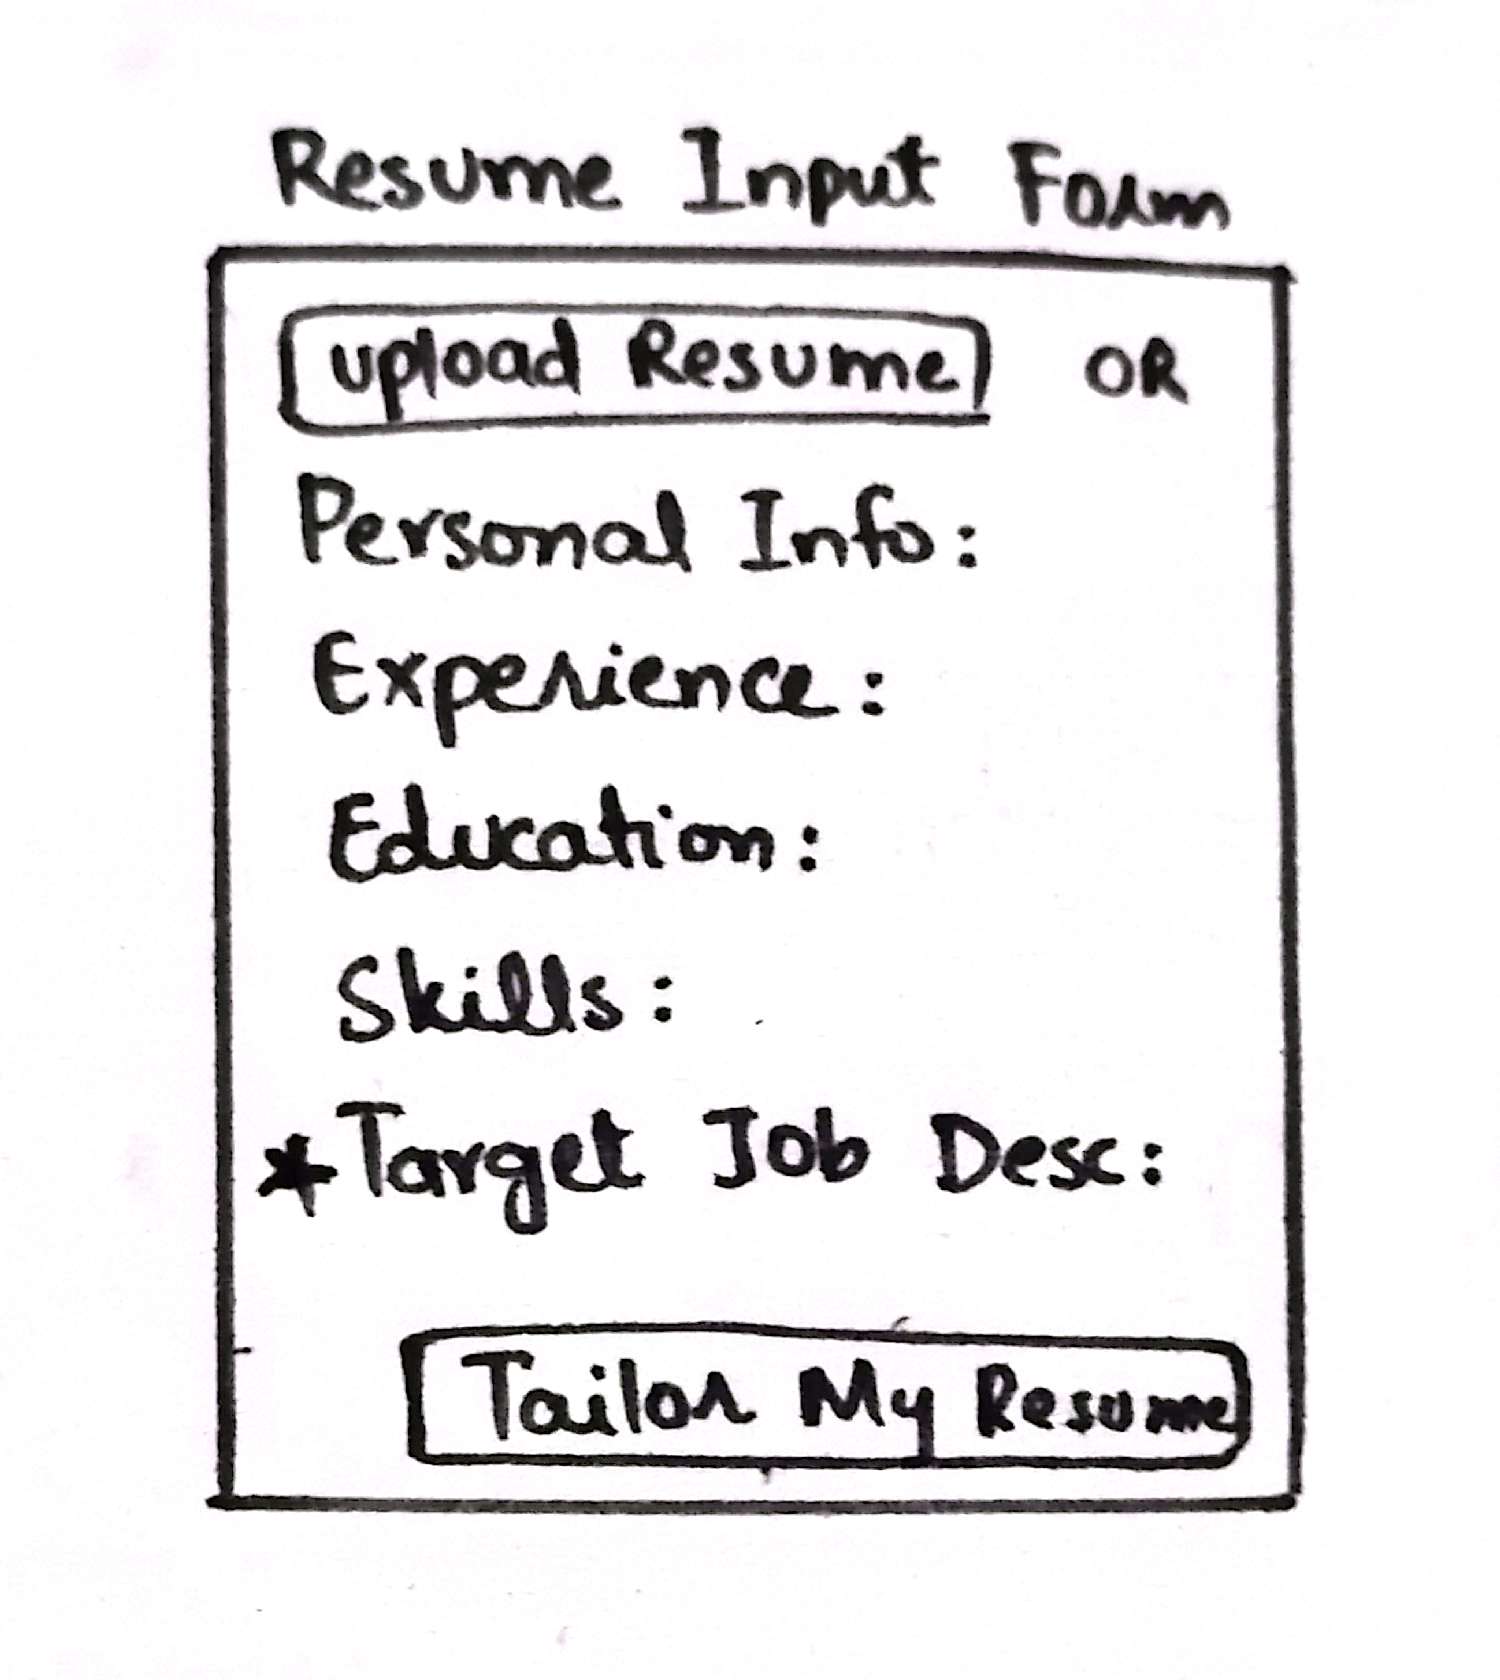 Resume Input Form
upload Resume OR
Personal Info:
Experience:
Education:
Skills:
*Target Job Desc:
Tailor My Resume